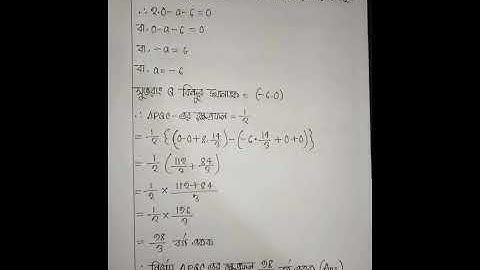 ∴ 2·0-a-6=0
বা, 0-a-6=0
বা, -a=6
বা, a=-6
সুতরাং Q বিন্দুর স্থানাঙ্ক = (-6,0)
∴ ΔPQC-এর ক্ষেত্রফল = 1/2
= 1/2 {(0·0+8·14/3)-(-6·14/3+0+0)}
= 1/2 (112/3 + 84/3)
= 1/2 × (112+84)/3
= 1/2 × 196/3
= 98/3 বর্গ একক
∴ নির্ণেয় ΔPQC এর ক্ষেত্রফল 98/3 বর্গ একক (Ans)